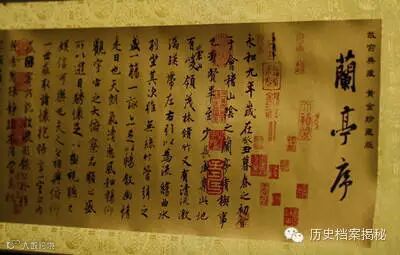 故宫典藏 黄金珍藏版
蘭亭序
永和九年歲在癸丑暮春之初會
于會稽山陰之蘭亭脩稧事
也群賢畢至少長咸集此地
有崇山峻領茂林脩竹又有清流激
湍暎帶左右引以為流觴曲水
列坐其次雖無絲竹管弦之
盛一觴一詠亦足以暢敘幽情
是日也天朗氣清惠風和暢仰
觀宇宙之大俯察品類之盛
所以遊目騁懷足以極視聽之
娛信可樂也夫人之相與俯仰
一世或取諸懷抱悟言一室之內
或因寄所託放浪形骸之外雖
历史档案揭秘